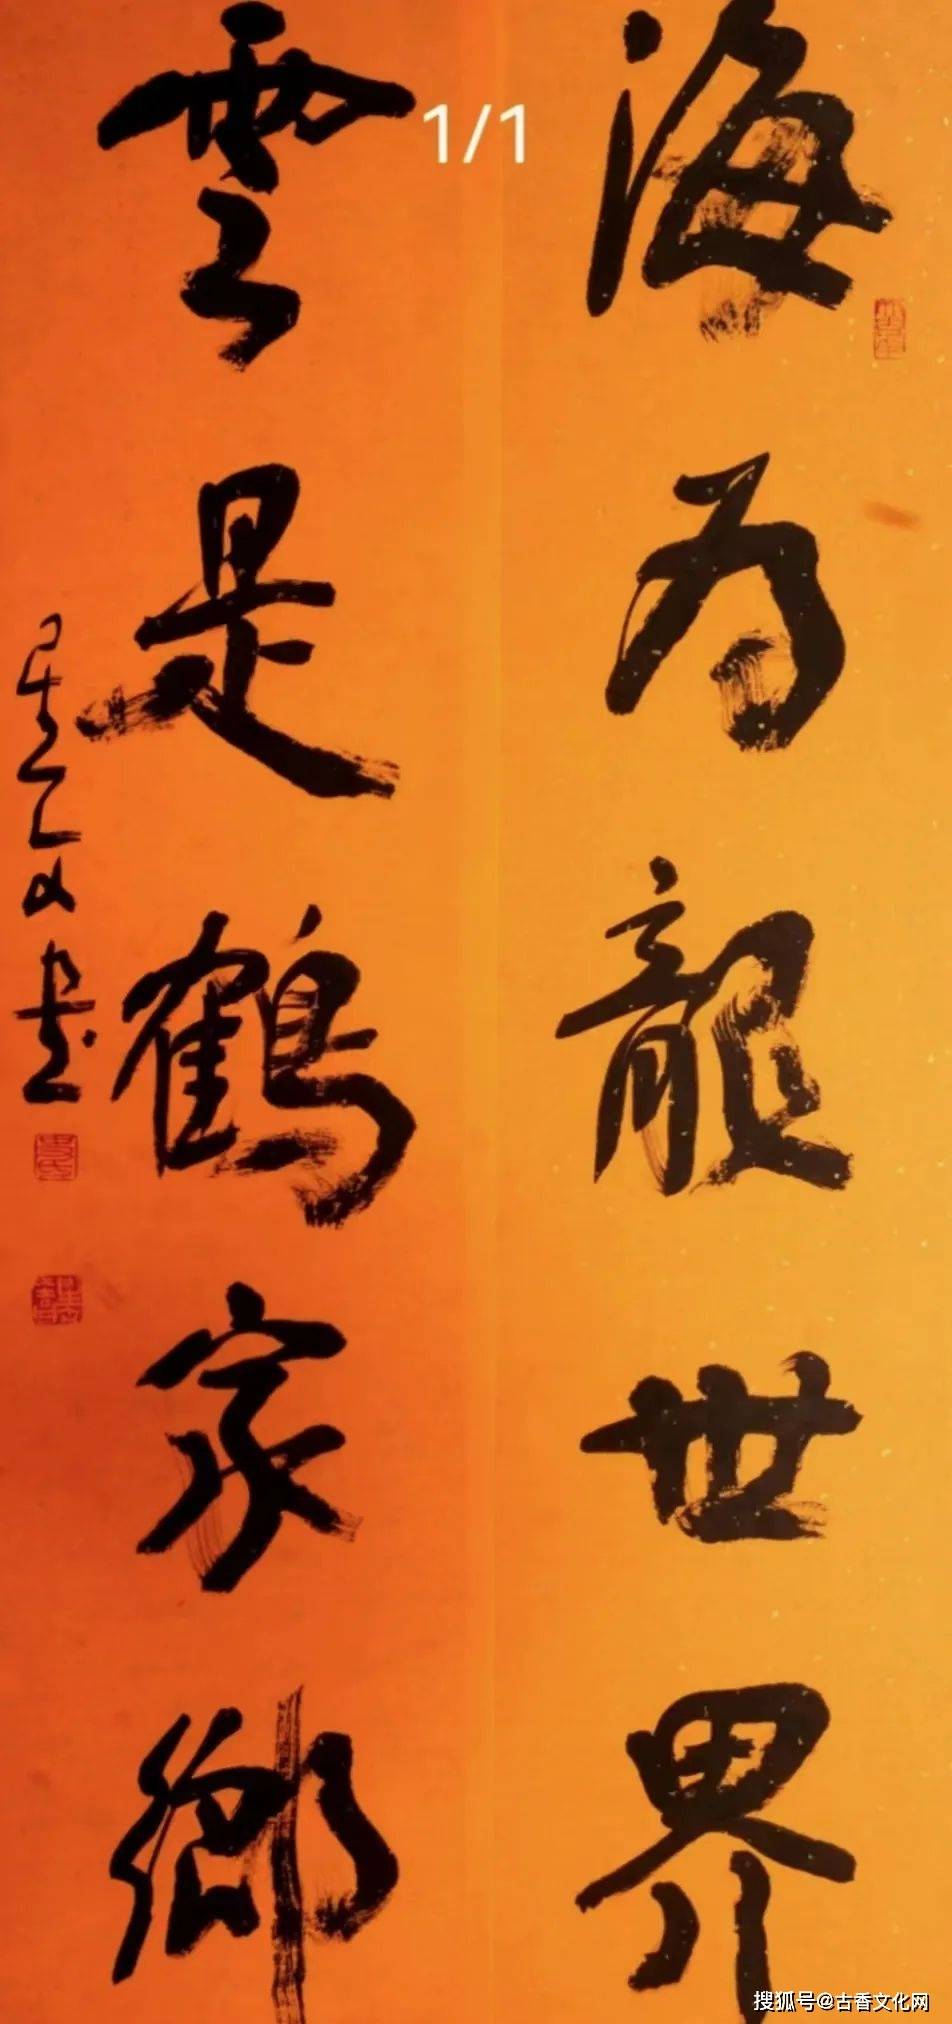 海为龍世界
雲是鶴家鄉
1/1
搜狐号@古香文化网